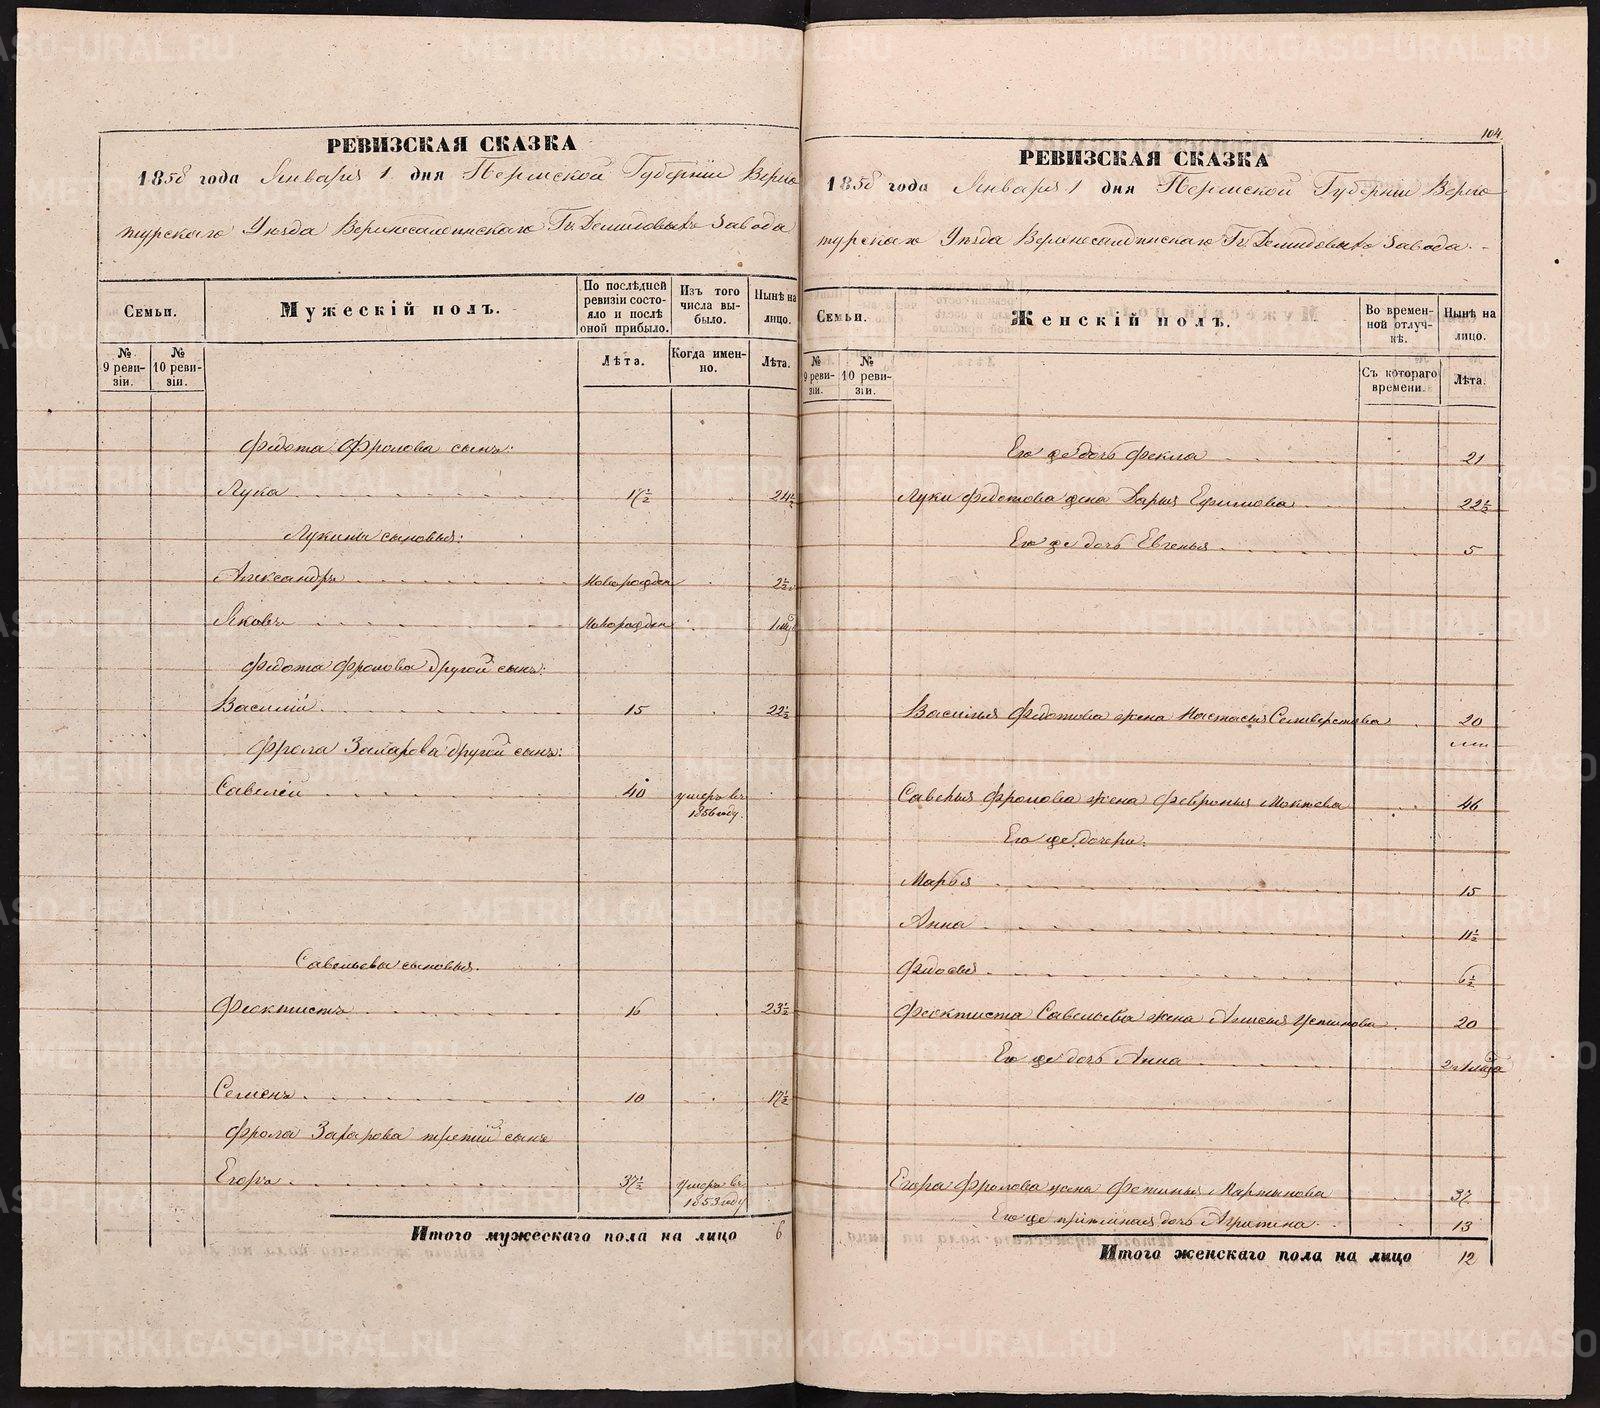 РЕВИЗСКАЯ СКАЗКА
1858 года Января 1 дня Пермской Губерніи Верхо
турскаго Уезда Верхнесалдинскаго Гг. Демидовыхъ Завода
Семьи.
Мужескій полъ.
По послѣдней ревизіи состояло и послѣ оной прибыло.
Изъ того числа выбыло.
Нынѣ на лицо.
№ 9 ревизіи.
№ 10 ревизіи.
Лѣта.
Когда именно.
Лѣта.
Федота Фролова сынъ:
Лука 17½ 24½
Лукины сыновья:
Александръ новорожден 2½
Яковъ новорожден 1
Федота Фролова другой сынъ:
Василій 15 22½
Фрола Захарова другой сынъ:
Савелей 40 умеръ въ
1856 году.
Савельевы сыновья.
Феоктистъ 16 23½
Семенъ 10 17½
Фрола Захарова третій сынъ
Егоръ 37½ умеръ въ
1853 году
Итого мужескаго пола на лицо 6
104.
РЕВИЗСКАЯ СКАЗКА
1858 года Января 1 дня Пермской Губерніи Верхо
турскаго Уезда Верхнесалдинскаго Гг. Демидовыхъ Завода.
Семьи.
Женскій полъ.
Во временной отлучкѣ.
Нынѣ на лицо.
№ 9 ревизіи.
№ 10 ревизіи.
Съ котораго времени.
Лѣта.
Его же дочь Фекла 21
Луки Федотова жена Дарья Ефимова 22½
Его же дочь Евгенья 5
Василья Федотова жена Настасья Селиверстова 20
Савелья Фролова жена Февронья 46
Его же дочери:
Марья 15
Анна 11½
Федосья 6½
Феоктиста Савельева жена Устинова 20
Его же дочь Анна 2
Егора Фролова жена Фетинья Мартынова 37
Его же дочь Агрипена 13
Итого женскаго пола на лицо 12
METRIKI.GASO-URAL.RU